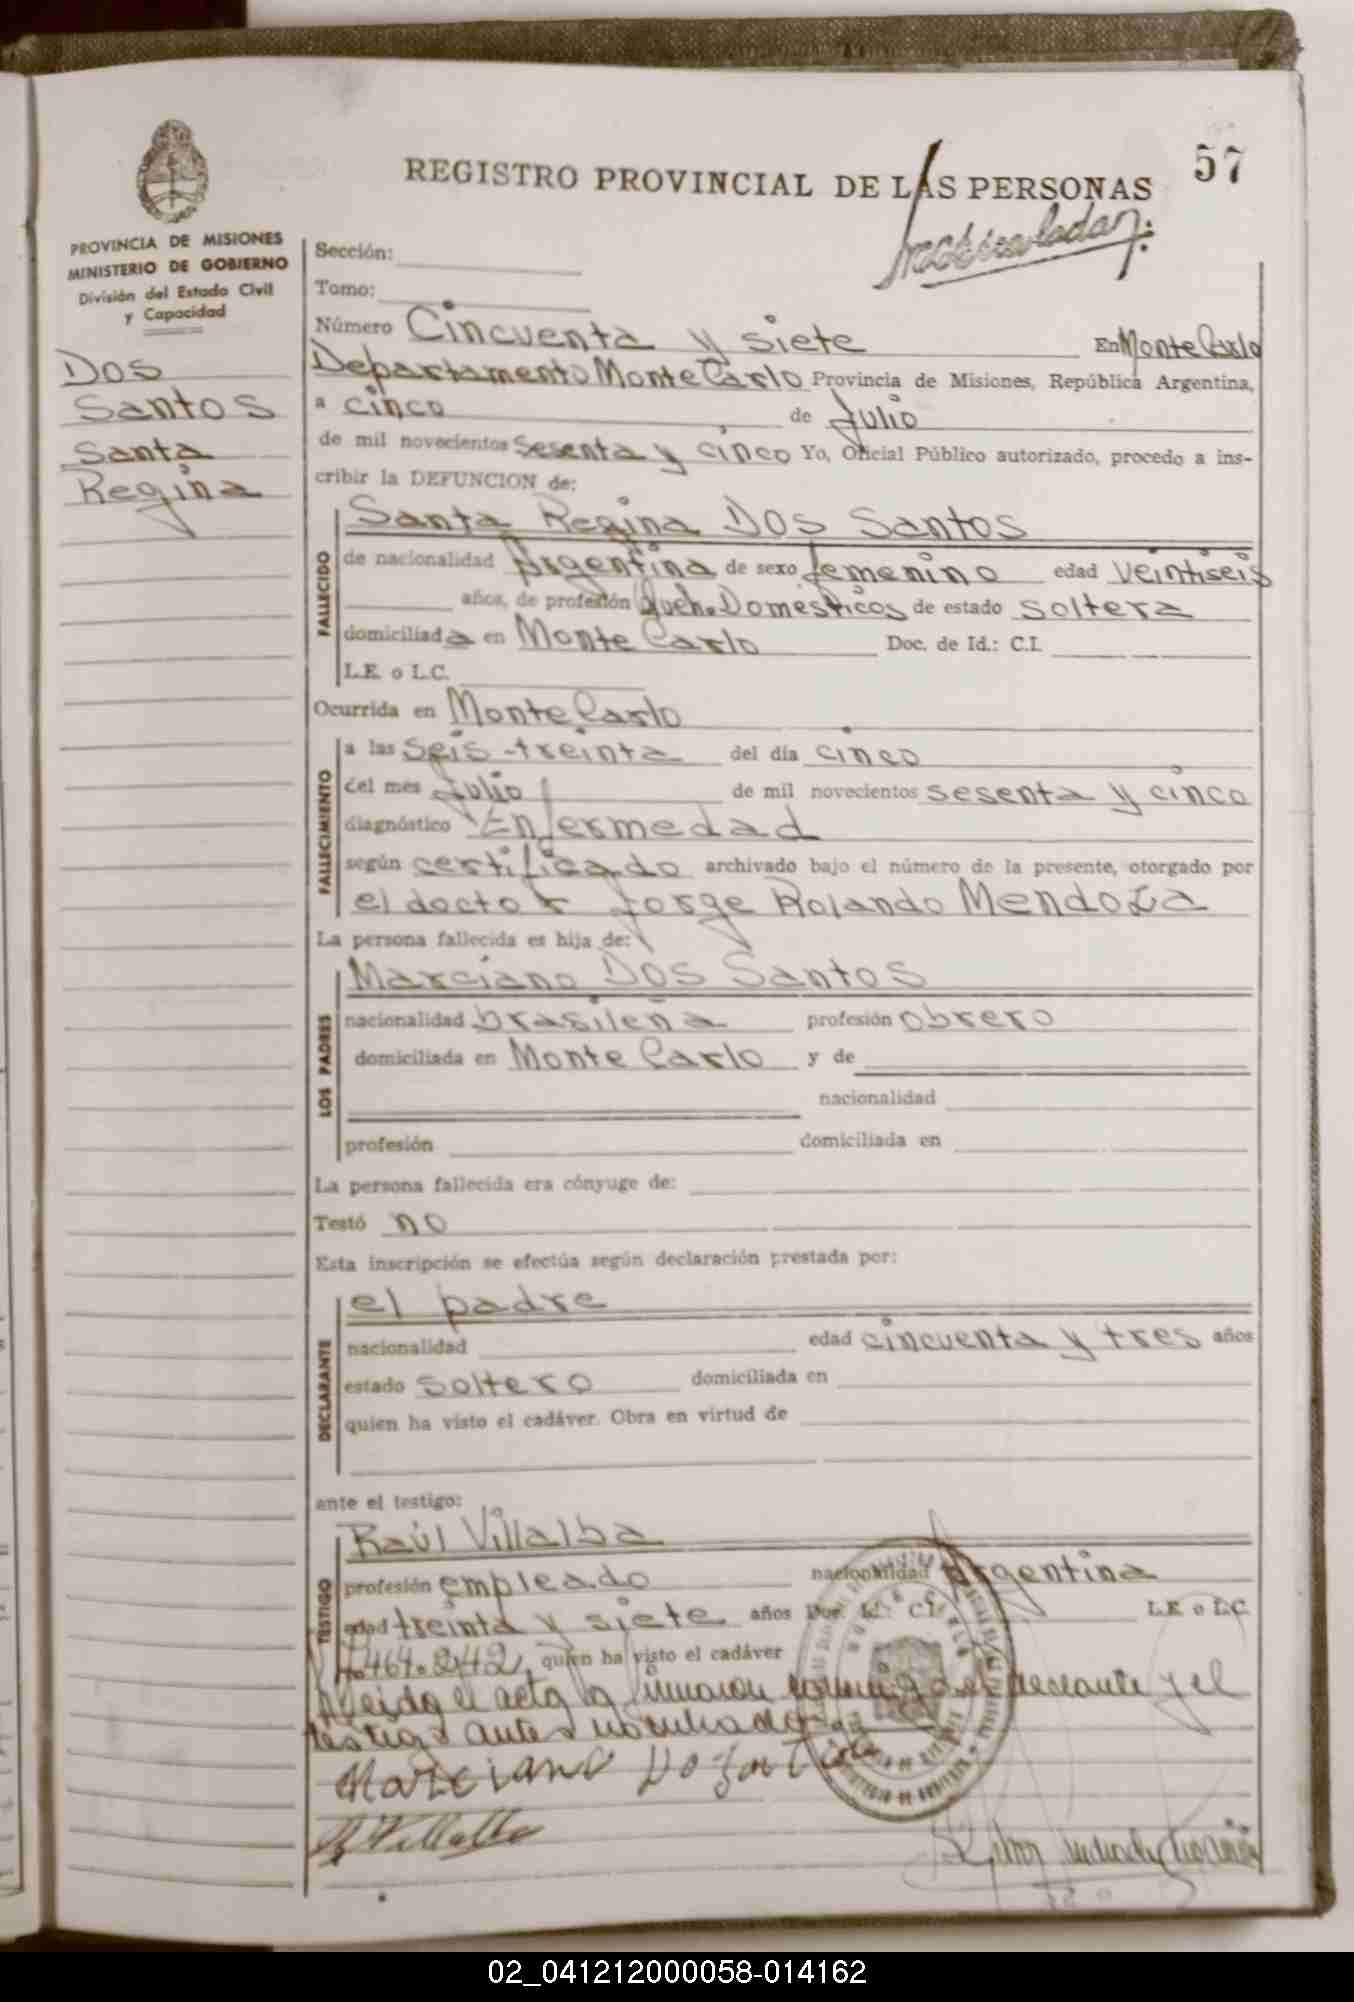 57
REGISTRO PROVINCIAL DE LAS PERSONAS
PROVINCIA DE MISIONES
MINISTERIO DE GOBIERNO
División del Estado Civil
y Capacidad
Dos
Santos
Santa
Regina
Sección:
Tomo:
Número Cincuenta y siete En Monte Carlo
Departamento Monte Carlo Provincia de Misiones, República Argentina,
a cinco de Julio
de mil novecientos sesenta y cinco Yo, Oficial Público autorizado, procedo a ins-
cribir la DEFUNCION de:
Santa Regina Dos Santos
FALLECIDO
de nacionalidad Argentina de sexo femenino edad veintiseis
años, de profesión Queh. Domésticos de estado soltera
domiciliada en Monte Carlo Doc. de Id.: C.I.
L.E. o L.C.
Ocurrida en Monte Carlo
FALLECIMIENTO
a las seis-treinta del día cinco
del mes Julio de mil novecientos sesenta y cinco
diagnóstico Enfermedad
según certificado archivado bajo el número de la presente, otorgado por
el doctor Jorge Rolando Mendoza
La persona fallecida es hija de:
Marciano Dos Santos
LOS PADRES
nacionalidad brasileña profesión obrero
domiciliada en Monte Carlo y de
nacionalidad
profesión domiciliada en
La persona fallecida era cónyuge de:
Testó no
Esta inscripción se efectúa según declaración prestada por:
el padre
DECLARANTE
nacionalidad edad cincuenta y tres años
estado soltero domiciliada en
quien ha visto el cadáver. Obra en virtud de
ante el testigo:
Raúl Villalba
TESTIGO
profesión empleado nacionalidad Argentina
edad treinta y siete años Doc. Id.: C.I. L.E. o L.C.
quien ha visto el cadáver
Leida el acta la firmaron conmigo el declarante y el
testigo antes nombrado
Marciano Do Santos
R Villalba
02_041212000058-014162